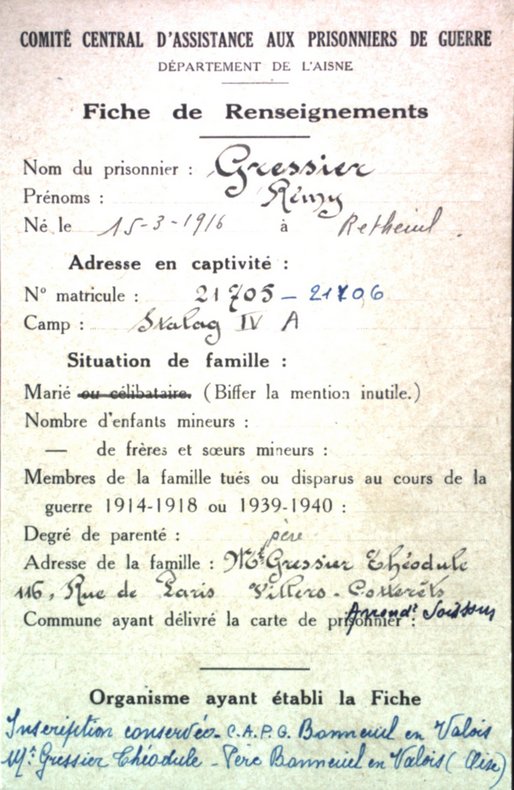 COMITÉ CENTRAL D'ASSISTANCE AUX PRISONNIERS DE GUERRE
DÉPARTEMENT DE L'AISNE
Fiche de Renseignements
Nom du prisonnier : Gressier
Prénoms : Rémy
Né le 15-3-1916 à Retheuil.
Adresse en captivité :
N° matricule : 21705 - 21706
Camp : Stalag IV A
Situation de famille :
Marié ou célibataire. (Biffer la mention inutile.)
Nombre d'enfants mineurs :
— de frères et sœurs mineurs :
Membres de la famille tués ou disparus au cours de la
guerre 1914-1918 ou 1939-1940 :
Degré de parenté : père
Adresse de la famille : Mr Gressier Théodule
116, Rue de Paris Villers-Cotterêts
Commune ayant délivré la carte de prisonnier : Arrondt Soissons
Organisme ayant établi la Fiche
Inscription conservée - C.A.P.G. Bonneuil en Valois
Mr Gressier Théodule - Père Bonneuil en Valois (Oise)